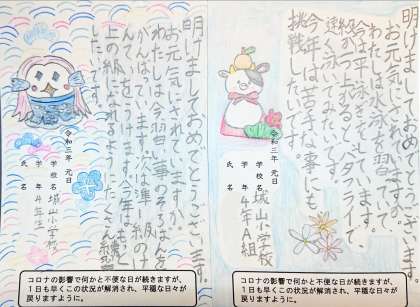 明けましておめでとうございます。
お元気にされていますか。
わたしは今習い事のそろばんを
がんばっています。次は準一級のけ
んていをうけます。今年はもっと
上の級になれるようにたくさん練習
したいです。
令和三年 元日
学校名 城山小学校
学年 4年生
氏名
コロナの影響で何かと不便な日が続きますが、
1日も早くこの状況が解消され、平穏な日々が
戻りますように。
明けましておめでとうございます。
お元気にされていますか。
わたしは水泳を習っていて
今は平泳
く泳いでみたいです。
今年は苦手な事にも
挑戦したいです。
令和三年 元日
学校名 城山小学校
学年 4年A組
氏名
コロナの影響で何かと不便な日が続きますが、
1日も早くこの状況が解消され、平穏な日々が
戻りますように。